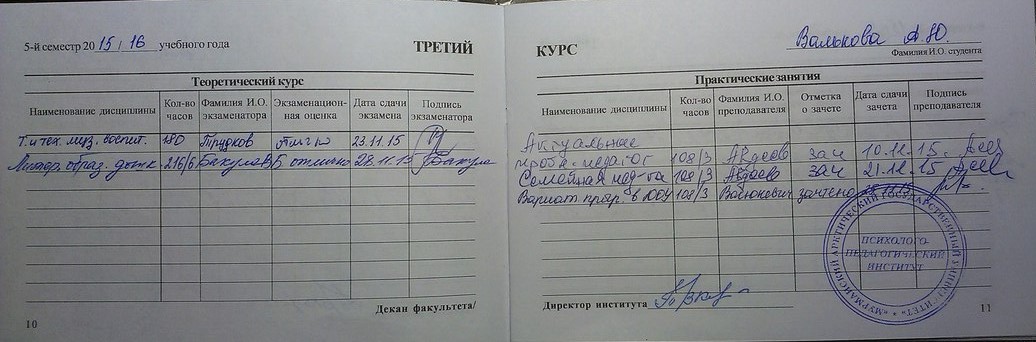 5-й семестр 20 15 / 16 учебного года
ТРЕТИЙ
Теоретический курс
Наименование дисциплины Кол-во часов Фамилия И.О. экзаменатора Экзаменацион- ная оценка Дата сдачи экзамена Подпись экзаменатора
Т. и тех. муз. воспит. 180 23.11.15
образ. дошк. 216/6 отлично 28.11.15
Декан факультета/
10
КУРС
Валькова А.Ю.
Фамилия И.О. студента
Практические занятия
Наименование дисциплины Кол-во часов Фамилия И.О. преподавателя Отметка о зачете Дата сдачи зачета Подпись преподавателя
Актуальные
пробл. педагог 108/3 Авдеева зач 10.11.15.
Семейная пед-ка 108/3 Авдеева зач 21.11.15
Вариат. прогр. в ДОУ 108/3 зачтено
МУРМАНСКИЙ АРКТИЧЕСКИЙ ГОСУДАРСТВЕННЫЙ УНИВЕРСИТЕТ
ПСИХОЛОГО-
ПЕДАГОГИЧЕСКИЙ
ИНСТИТУТ
Директор института
11